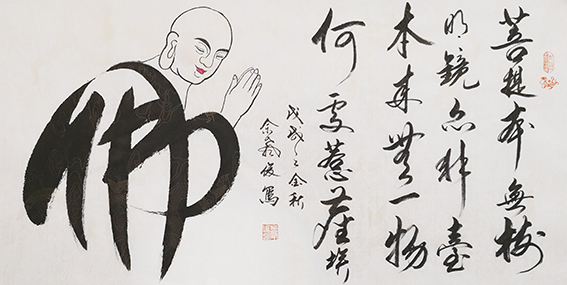 菩提本無樹
明鏡亦非臺
本來無一物
何處惹塵埃
戊戌金秋
余俊寫
佛